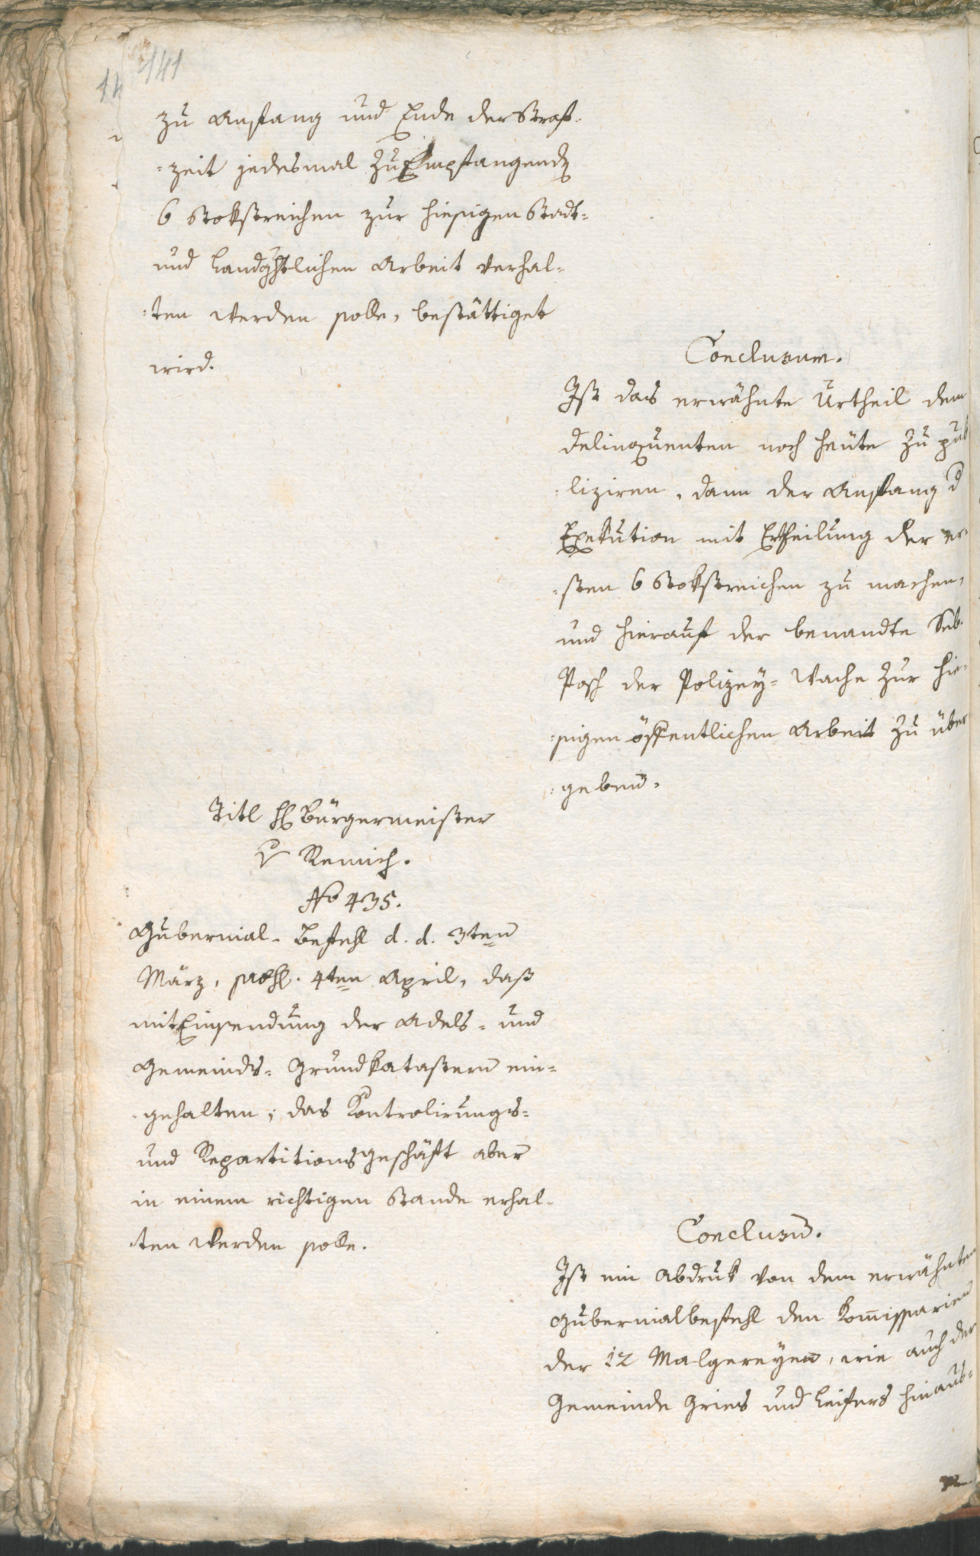 141
14
zu Anfang und Ende der Straf-
-zeit jedesmal zu Empfangenden
6 Stokstreichen zur hiesigen Stadt-
und Landgerichtlichen Arbeit verhal-
-ten werden solle, bestättiget
wird.
Conclusum.
Ist das erwähnte Urtheil dem
Delinquenten noch heute zu pub
-liziren, dann der Anfang d
Exekution mit Ertheilung der er
-sten 6 Stokstreichen zu machen,
und hierauf der benandte Seb.
Posch der Polizey-Wache zur hie-
-sigen öffentlichen Arbeit zu über
-geben.
Titl H Bürgermeister
v Remich.
No 435.
Gubernial-Befehl d. d. 3ten
März, 4ten April, daß
mit Einsendung der Adels- und
Gemeinds-Grundkatastern ein-
-gehalten, das Kontrolirungs-
und Repartitionsgeschäft aber
in einem richtigen Stande erhal-
-ten werden solle.
Conclusum.
Ist ein Abdruk von dem erwähnten
Gubernialbefehl den Kommissarien
der 12 Malgereyen, wie auch der
Gemeinde Gries und Leifers hinaus-